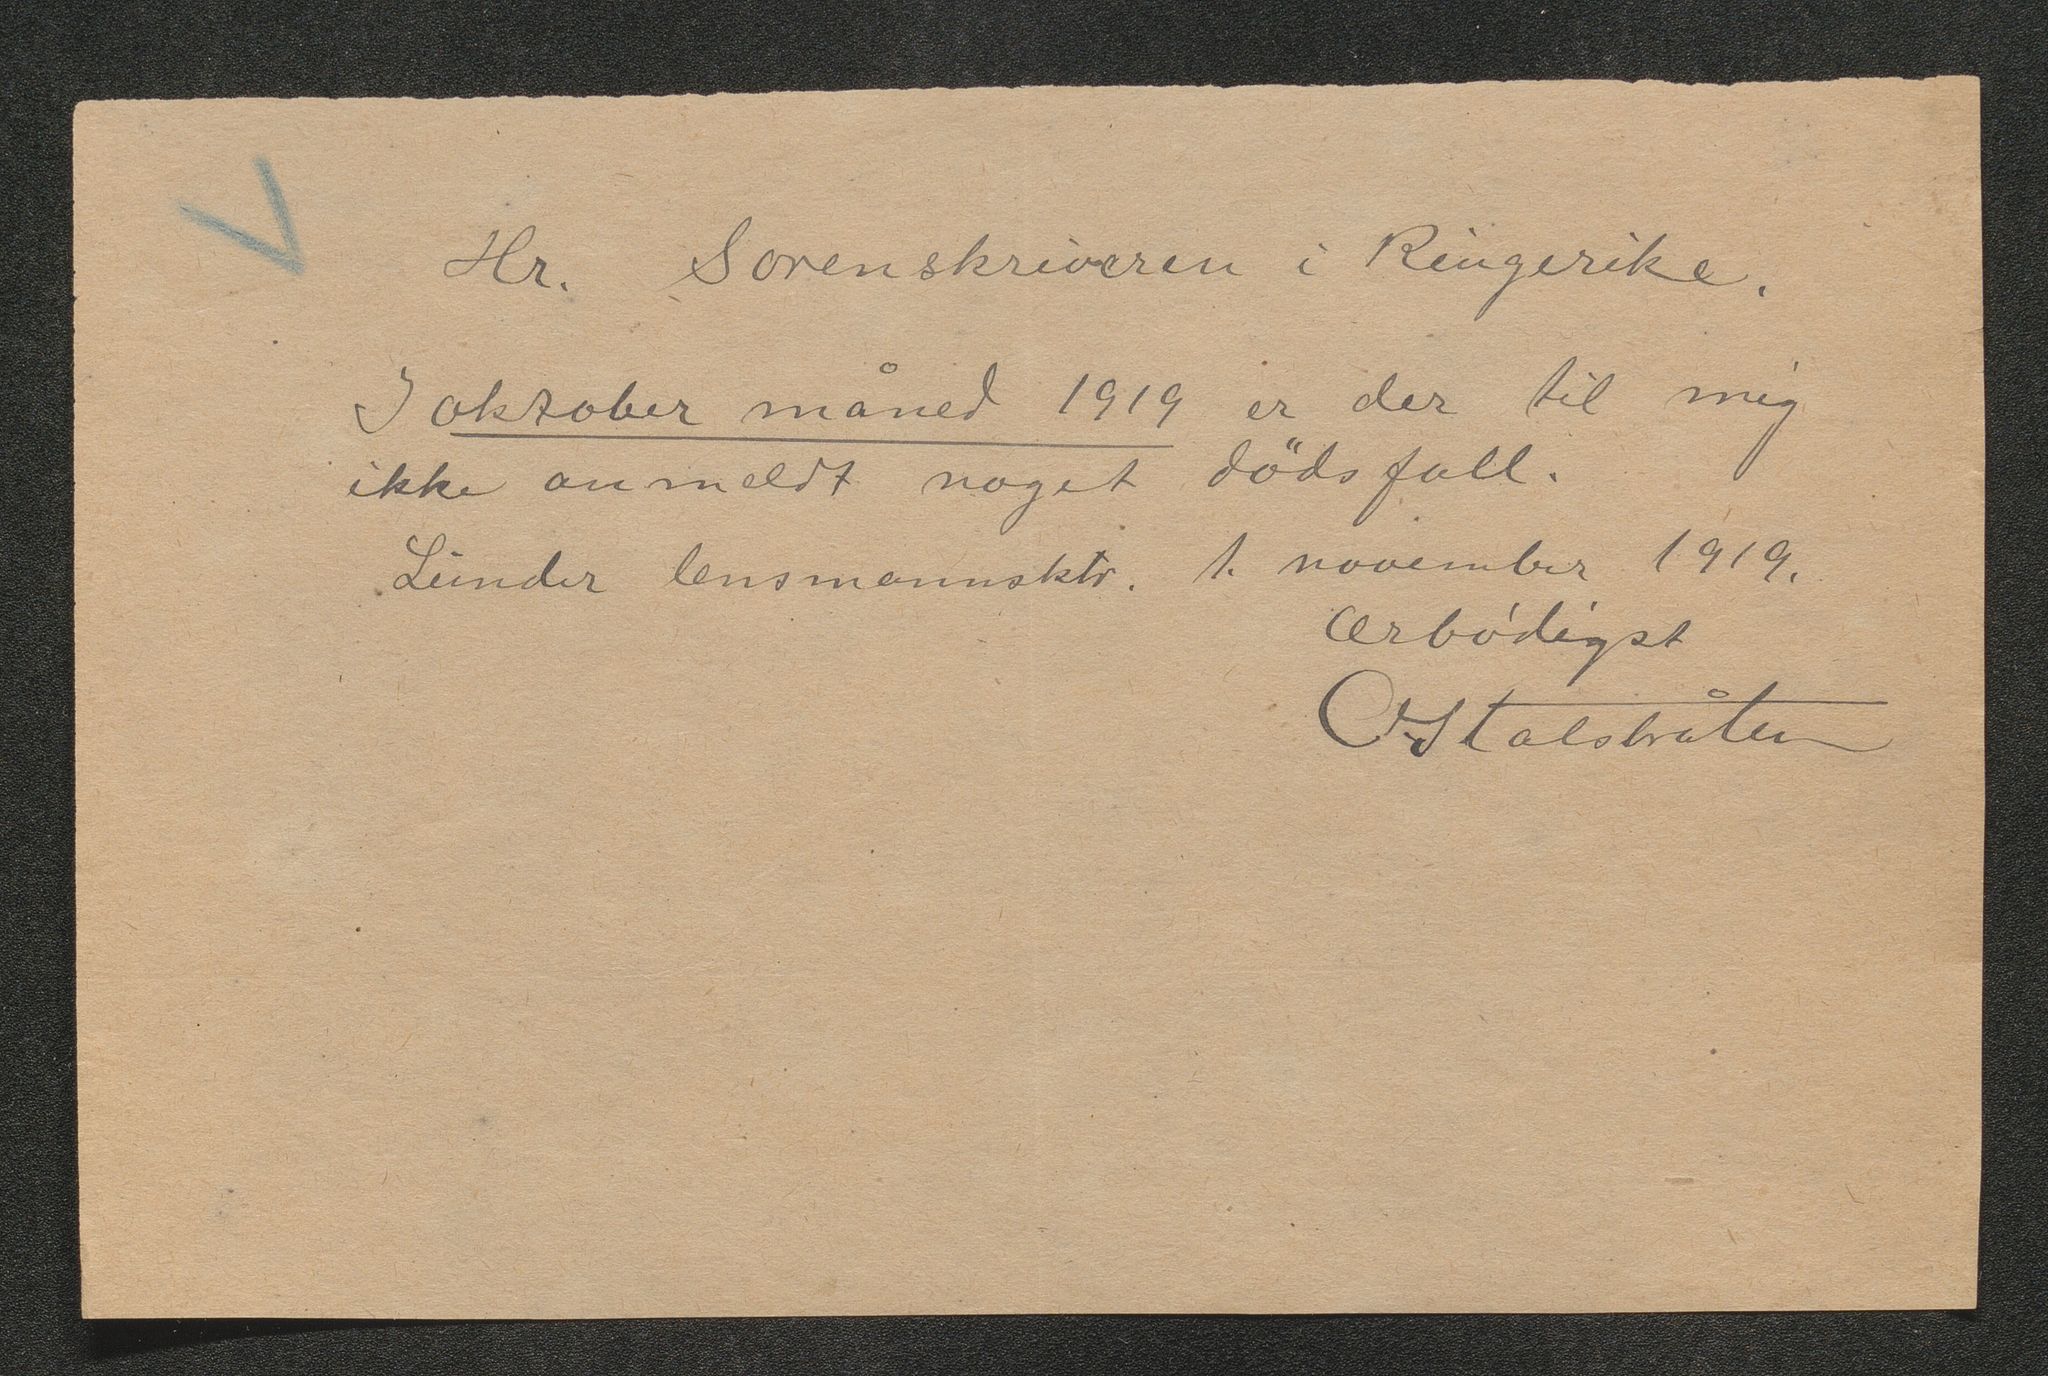 Hr. Sorenskriveren i Ringerike.
I oktober måned 1919 er der til mig
ikke anmeldt noget dödsfall.
Lunder lensmannsktr. 1. november 1919.
ærbödigst